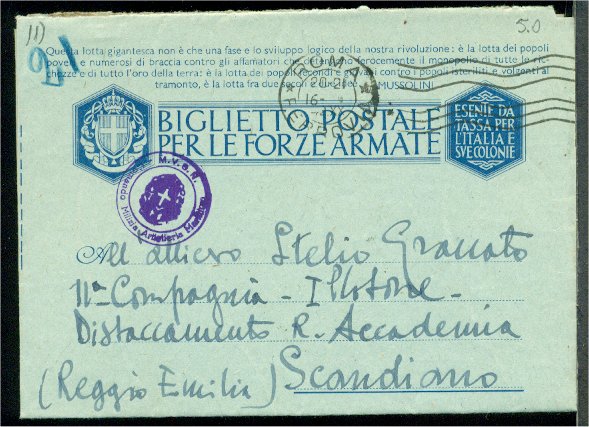 11)
5.0
Questa lotta gigantesca non è che una fase e lo sviluppo logico della nostra rivoluzione: è la lotta dei popoli
poveri e numerosi di braccia contro gli affamatori che detengono ferocemente il monopolio di tutte le ric-
chezze e di tutto l'oro della terra: è la lotta dei popoli fecondi e giovani contro i popoli isteriliti e volgenti al
tramonto, è la lotta fra due secoli e due idee. MUSSOLINI
ROMA
20-21
16-
BIGLIETTO POSTALE
PER LE FORZE ARMATE
ESENTE DA
TASSA PER
L'ITALIA E
SVE COLONIE
M.V.S.N.
Milizia Artiglieria
All'allievo Stelio Granato
11a Compagnia - I Plotone -
Distaccamento R. Accademia
(Reggio Emilia) Scandiano